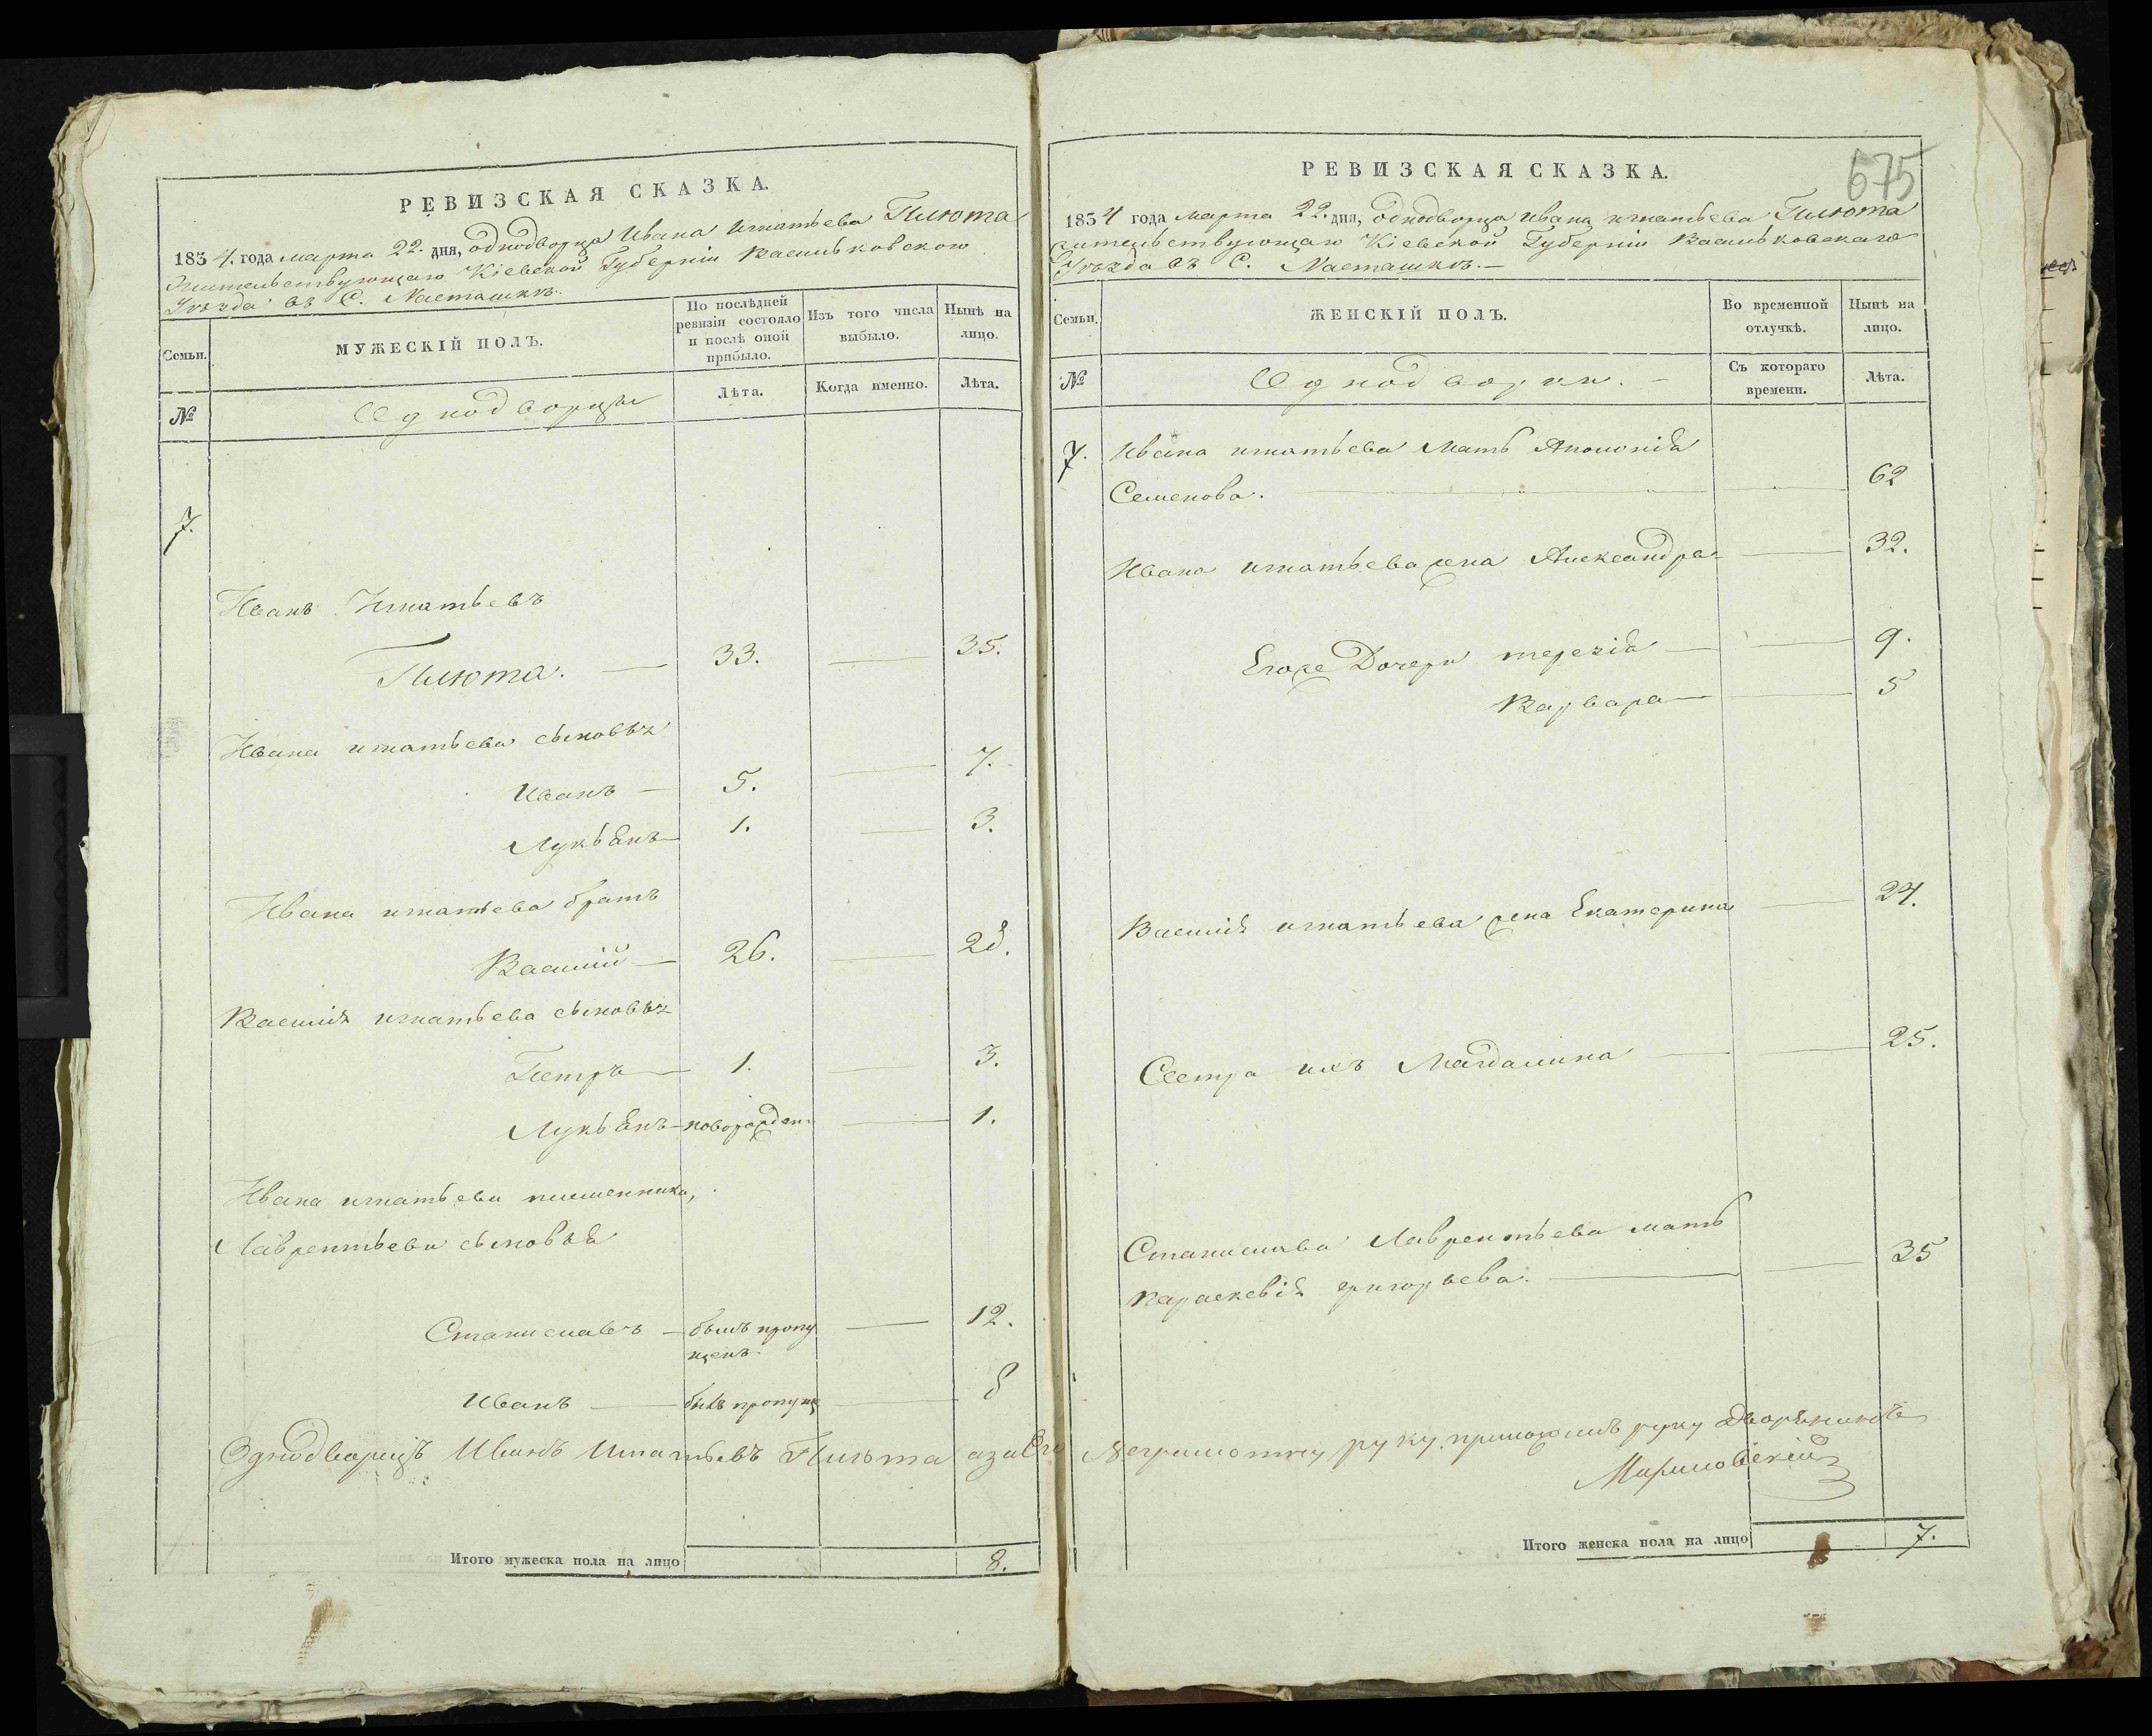 РЕВИЗСКАЯ СКАЗКА.
1834. года марта 22. дня, однодворца Ивана Игнатьева Плюта
Жительствующаго Кіевской Губерніи Васильковскаго
Уѣзда въ С. Насташкѣ.
Семьи.
МУЖЕСКІЙ ПОЛЪ.
По послѣдней ревизіи состояло и послѣ оной прибыло.
Изъ того числа выбыло.
Нынѣ на лицо.
№
Однодворцы
Лѣта.
Когда именно.
Лѣта.
7.
Иванъ Игнатьевъ
Плюта. — 33. — 35.
Ивана игнатьева сыновья
Иванъ — 5. — 7.
Лукьянъ — 1. — 3.
Ивана игнатьева братъ
Василій — 26. — 28.
Василія игнатьева сыновья
Петръ — 1. — 3.
Лукьянъ — новорожден. — 1.
Ивана игнатьева племенника,
Лаврентьева сыновья
Станиславъ — былъ пропу — 12.
щенъ.
Иванъ — былъ пропущ — 8
Однодворецъ Иванъ Игнатьевъ Плюта а за его
Итого мужеска пола на лицо 8.
675
РЕВИЗСКАЯ СКАЗКА.
1834 года марта 22. дня, однодворца Ивана игнатьева Плюта
жительствующаго Кіевской Губерніи Васильковскаго
Уѣзда въ С. Насташкѣ. —
Семьи.
ЖЕНСКІЙ ПОЛЪ.
Во временной отлучкѣ.
Нынѣ на лицо.
№
Однодворки. —
Съ котораго времени.
Лѣта.
7. Ивана игнатьева Мать Аполонія
Семенова. — 62
Ивана игнатьева жена Александра — 32.
Егоже Дочери терезія — 9.
Варвара — 5
Василія игнатьева жена Екатерина — 24.
Сестра ихъ Магдалина — 25.
Станислава Лаврентьева мать
Параскевія григорьева. — 35
неграмотну руку приложилъ руку Дворянинъ
Итого женска пола на лицо 7.